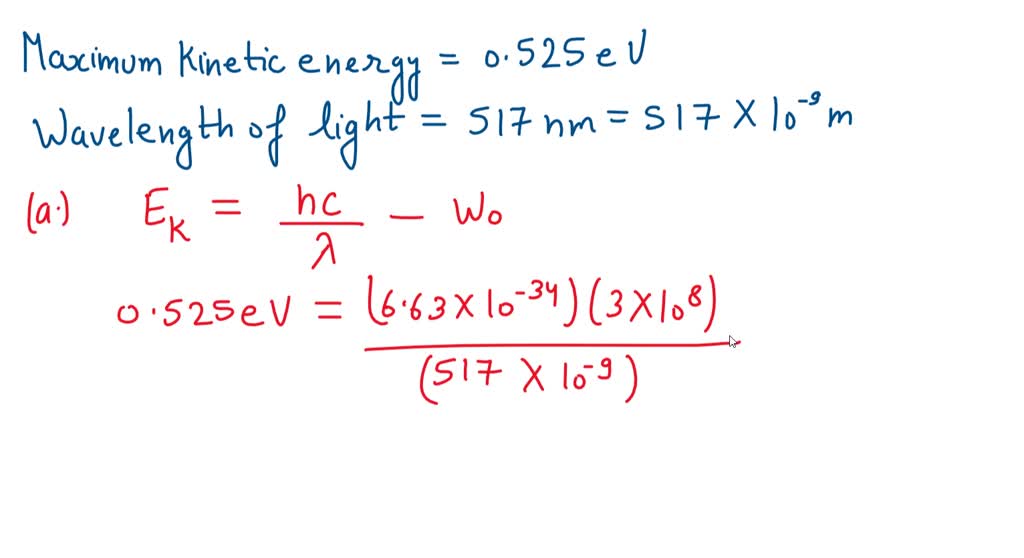 Maximum kinetic energy = 0.525 eV
Wavelength of light = 517 nm = 517 × 10⁻⁹ m
(a.) E_K = hc/λ − W₀
0.525 eV = (6.63 × 10⁻³⁴)(3 × 10⁸)
(517 × 10⁻⁹)